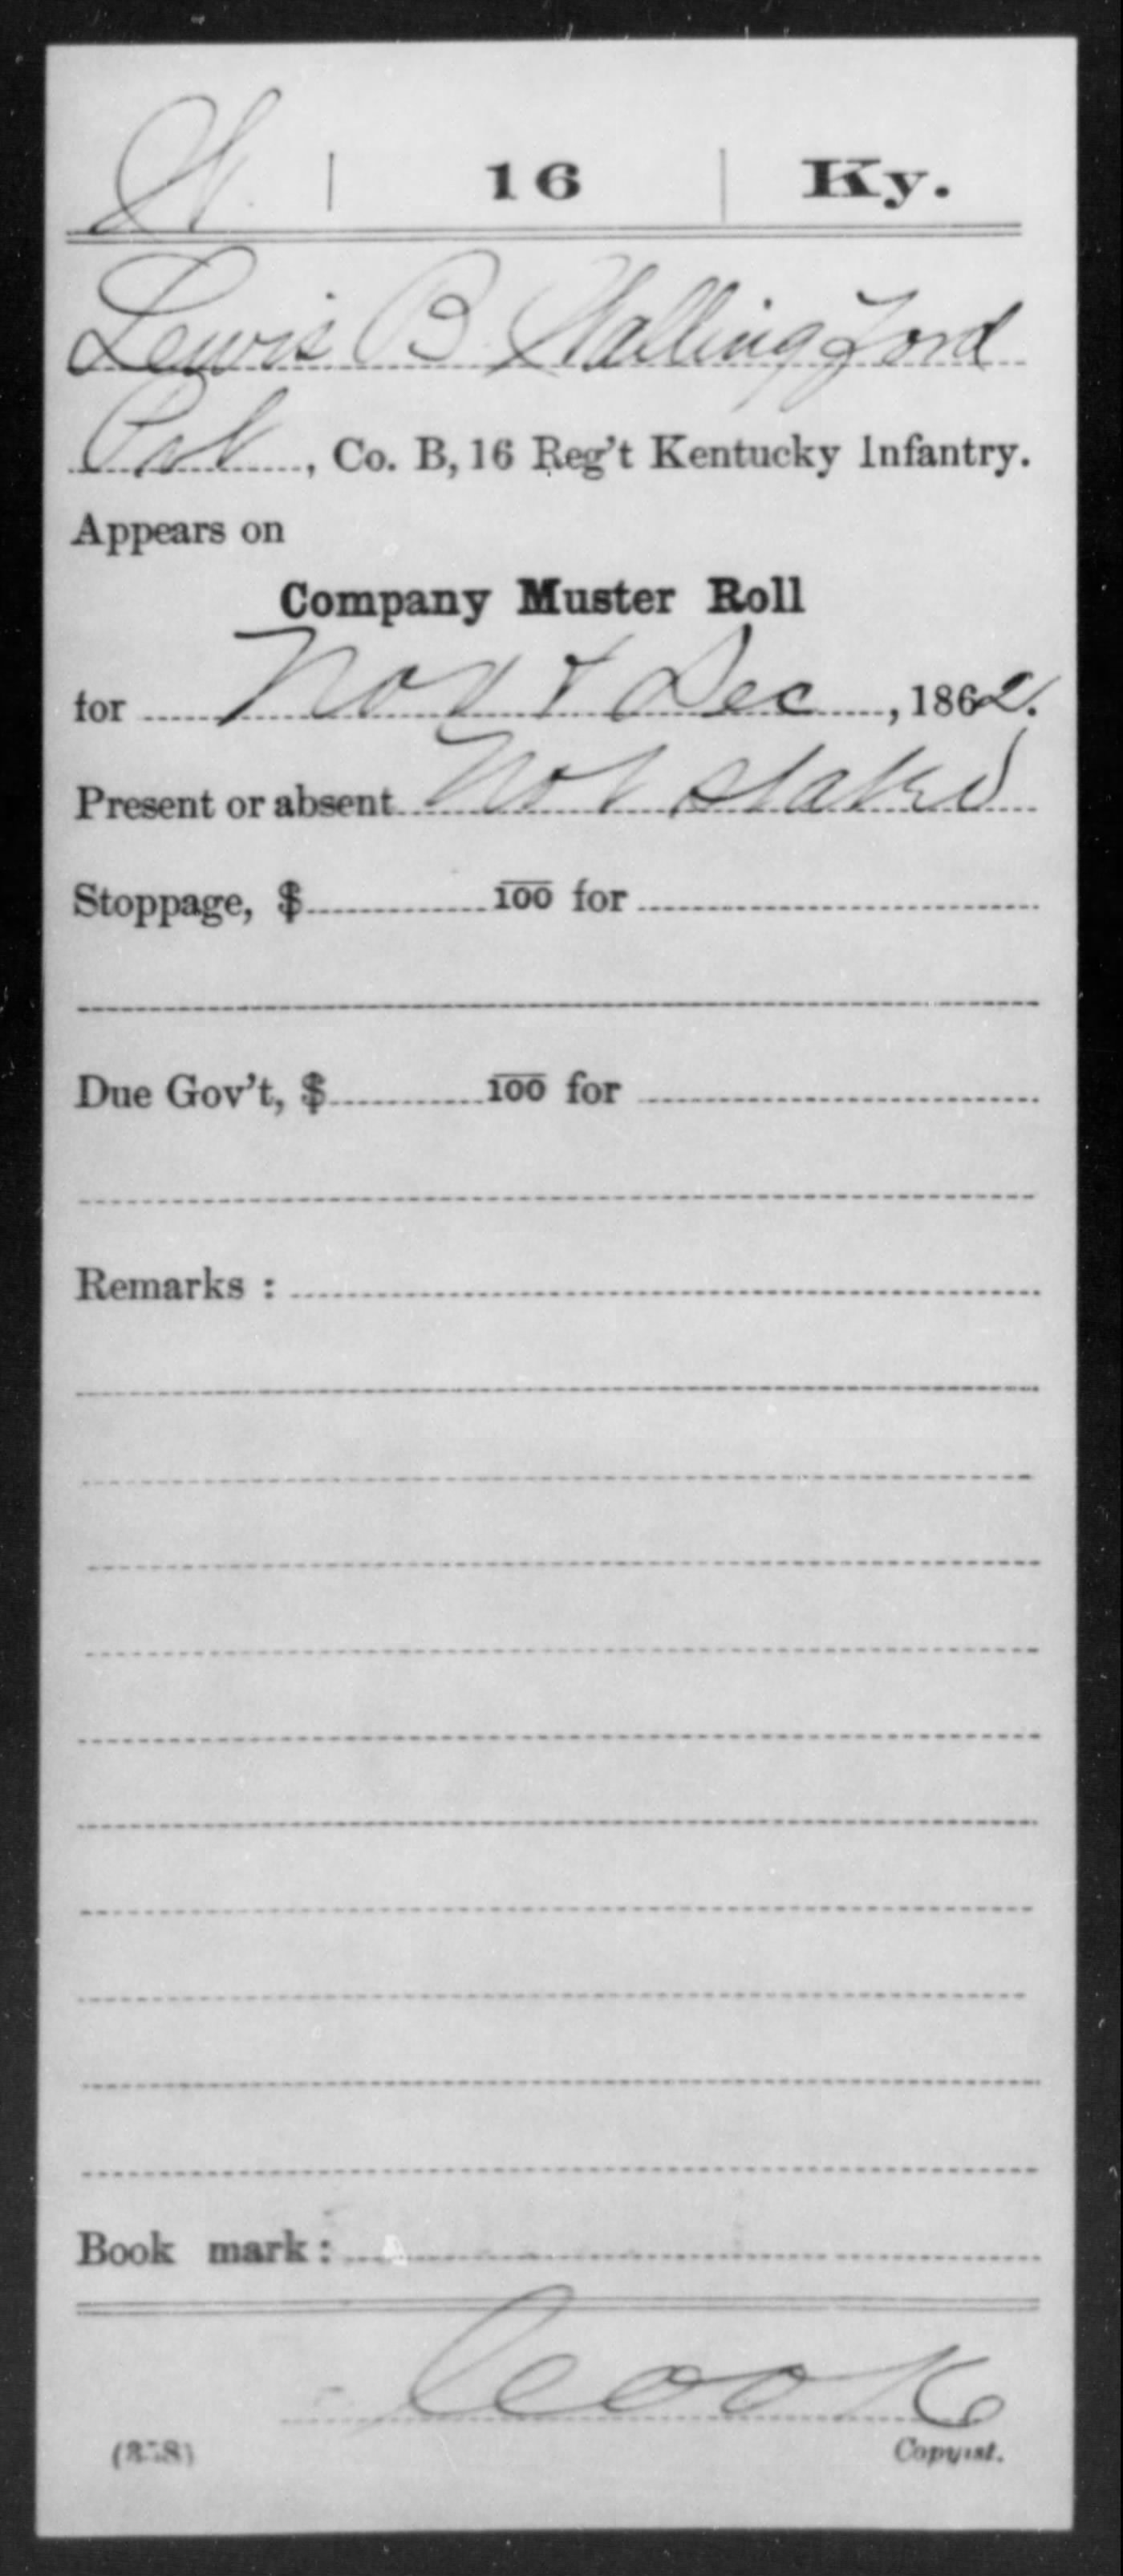 W. | 16 | Ky.
Lewis B Wallingford
Pvt, Co. B, 16 Reg't Kentucky Infantry.
Appears on
Company Muster Roll
for Nov & Dec, 1862.
Present or absent Not stated
Stoppage, $ 100 for
Due Gov't, $ 100 for
Remarks :
Book mark :
Cook
(358) Copyist.